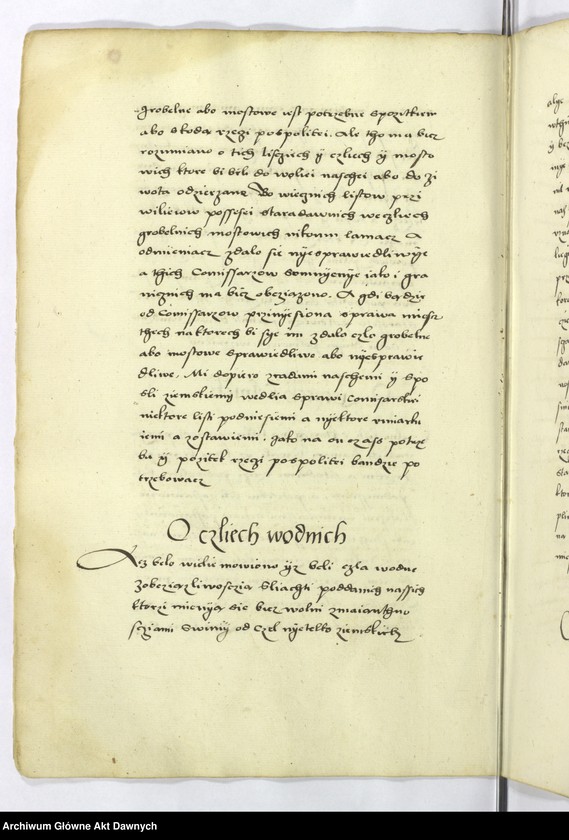 grobelne abo mostowe iest potrzebne spozitkiem
abo skoda rzeczi pospoliti. Ale tho ma bicz
rozumiano o tich lisciech ÿ czliech ÿ mosto
wich ktore bi bilo do woliei naschei abo do zi
wota odzierzane Bo wiecznich listow przi
wiliciow possesei staradawnich we czliech
grobelnich mostowich nikomu lamacz A
odmieniacz zdalo sie nÿesprawiedliwÿe
a thich Comissarzow sumnÿenÿe iako i gra
nicznich ma bicz obcziazono. A gdi bądzie
od Comissarzow prziniesiona sprawa mieisc
thech na ktorech bi sÿe im zdalo czlo grobelne
abo mostowe sprawiedliwo abo nÿesprawie
dliwe, Mi dopiero zradami naschemi ÿ Spo
sli ziemskiemi wedlia sprawi Comisarskei
niektore listi podniesiemi a nÿektore
iemi a zostawiemi. Iako na on czass potrzę
ba ÿ pozitek rzeczi pospoliti bandzie po
trzebowacz
O czliech wodnich
Acz belo wielie mowiono ÿz beli czla wodne
zobcziązliwosczią Sliachti poddanich nassich
ktorzi mienÿą sie bicz wolni
scziami Swimÿ od Czel nÿetelko ziemskich
Archiwum Główne Akt Dawnych